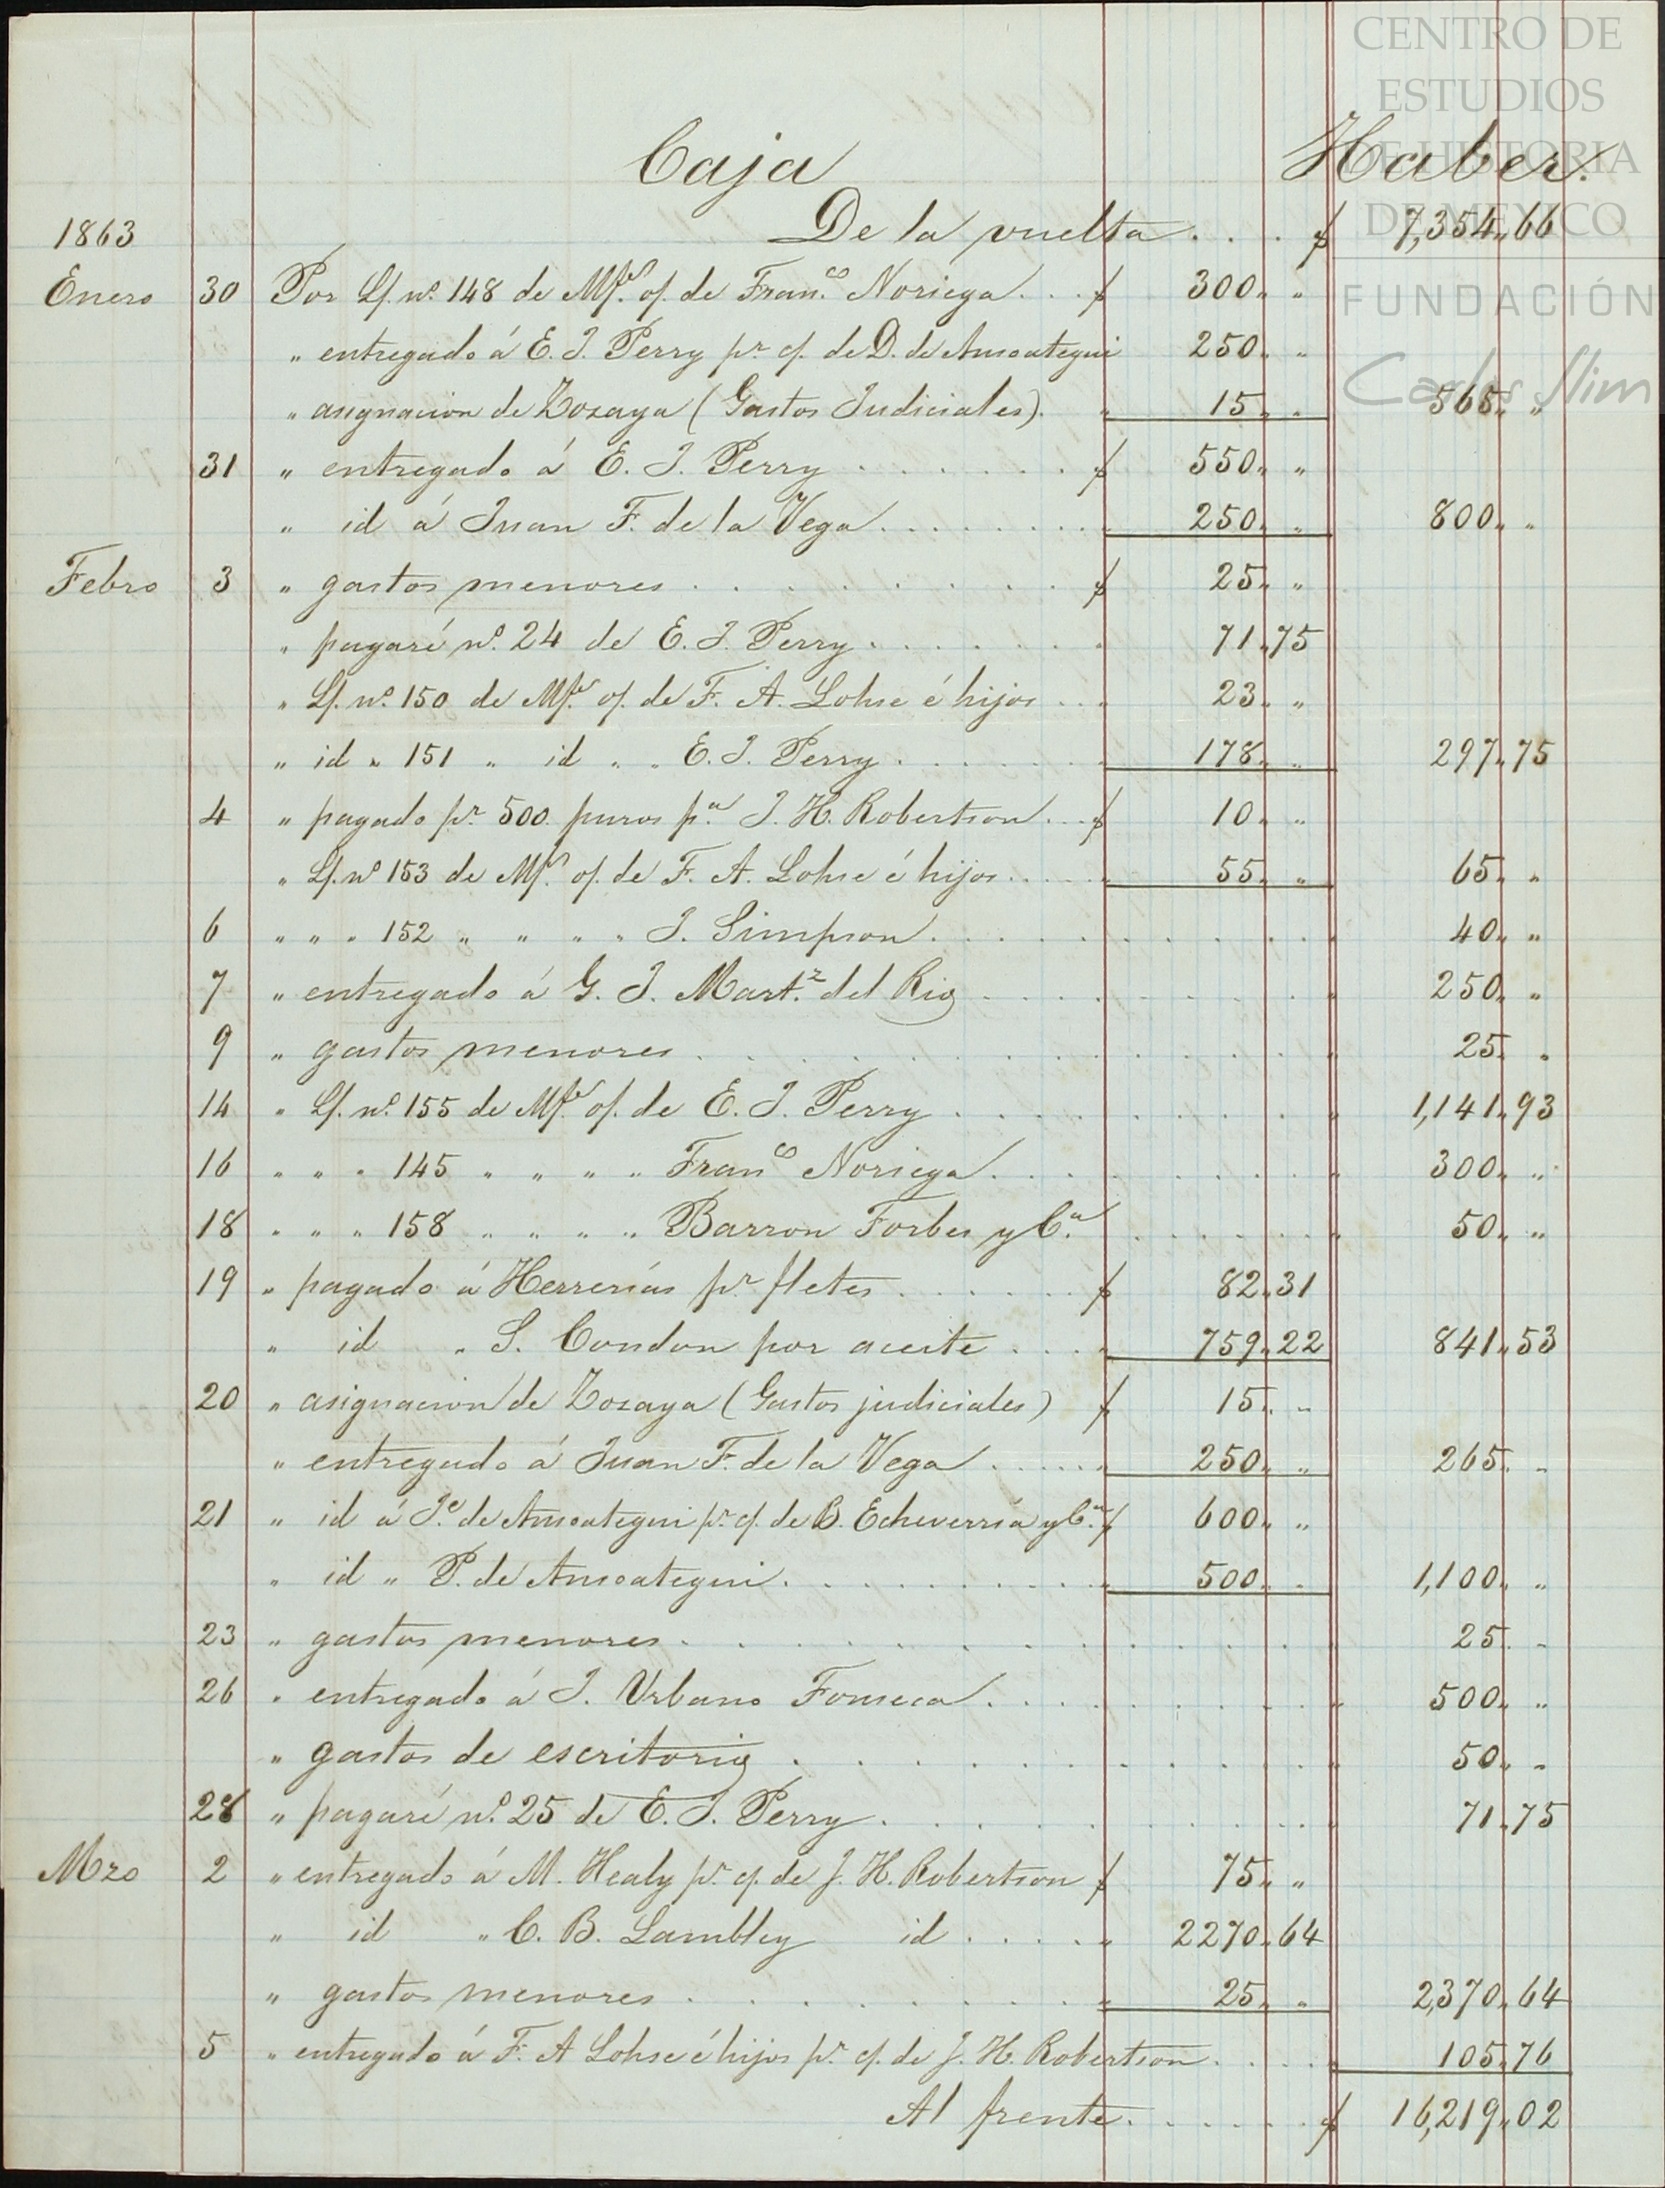 CENTRO DE
ESTUDIOS
DE HISTORIA
DE MÉXICO
FUNDACIÓN
Carlos Slim
Caja Haber.
De la vuelta . . . $ 7,354,, 66
1863
Enero 30 Por Lf. nº 148 de Mfº of. de Fran.co Noriega . . . $ 300,, ,,
,, entregado á E. J. Perry pr cf. de D. de Ansoategui 250,, ,,
,, asignacion de Zozaya (Gastos Judiciales). ,, 15,, ,, 565,, ,,
31 ,, entregado á E. J. Perry . . . . . . . $ 550,, ,,
,, id á Juan F. de la Vega . . . . . . . ,, 250,, ,, 800,, ,,
Febro 3 ,, gastos menores . . . . . . . . $ 25,, ,,
,, pagaré nº 24 de E. J. Perry . . . . . . . 71,, 75
,, Lf. nº 150 de Mfº of. de F. A. Lohse é hijos . . . 23,, ,,
,, id ,, 151 ,, id ,, ,, E. J. Perry . . . . . . 178,, ,, 297,, 75
4 ,, pagado pr 500 puros pa J. H. Robertson . . . $ 10,, ,,
,, Lf. nº 153 de Mfº of. de F. A. Lohse é hijos . . . . . 55,, ,, 65,, ,,
6 ,, ,, ,, 152 ,, ,, ,, ,, J. Simpson . . . . . . . . 40,, ,,
7 ,, entregado á G. J. Mart.z del Rio . . . . . . . . 250,, ,,
9 ,, gastos menores . . . . . . . . . . . 25,, ,,
14 ,, Lf. nº 155 de Mfº of. de E. J. Perry . . . . . . . . 1,141,, 93
16 ,, ,, ,, 145 ,, ,, ,, ,, Fran.co Noriega . . . . . . . . 300,, ,,
18 ,, ,, ,, 158 ,, ,, ,, ,, Barron Forbes y C.a . . . . . . . 50,, ,,
19 ,, pagado á Herrerías pr fletes . . . . . . . $ 82,, 31
,, id ,, S. Condon por aceite . . . . 759,, 22 841,, 53
20 ,, asignacion de Zozaya (Gastos judiciales) $ 15,, ,,
,, entregado á Juan F. de la Vega . . . . . . 250,, ,, 265,, ,,
21 ,, id á J.e de Ansoategui pr cf. de B. Echeverría y C.a $ 600,, ,,
,, id ,, P. de Ansoategui . . . . . . . . . 500,, ,, 1,100,, ,,
23 ,, gastos menores . . . . . . . . . . . 25,, ,,
26 ,, entregado á J. Urbano Fonseca . . . . . . . . 500,, ,,
,, gastos de escritorio . . . . . . . . . . 50,, ,,
28 ,, pagaré nº 25 de E. J. Perry . . . . . . . . 71,, 75
Mzo 2 ,, entregado á M. Healy pr cf. de J. H. Robertson $ 75,, ,,
,, id ,, C. B. Lambley id . . . . ,, 2270,, 64
,, gastos menores . . . . . . . . . 25,, ,, 2,370,, 64
5 ,, entregado á F. A Lohse é hijos pr cf. de J. H. Robertson . . . . 105,, 76
Al frente . . . . . . . $ 16,219,, 02